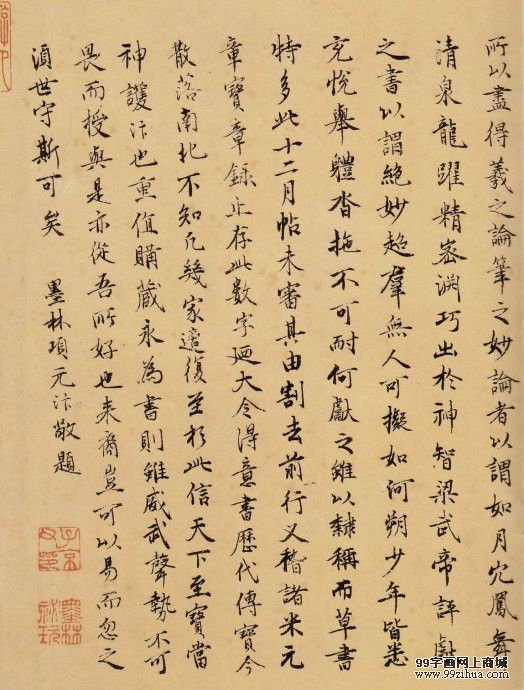 所以盡得羲之論筆之妙論者以謂如月穴鳳舞
清泉龍躍精密淵巧出於神智梁武帝評獻
之書以謂絕妙超羣無人可擬如河朔少年皆悉
充悅舉體沓拖不可耐何獻之雖以隸稱而草書
特多此十二月帖未審其由割去前行又稽諸米元
章寶章錄止存此數字廼大令得意書歷代傳寶今
散落南北不知凡幾家復至於此信天下至寶當
神護汴也重值購藏永為書則雖威武聲勢不可
畏而授與是亦從吾所好也來裔豈可以易而忽之
須世守斯可矣
墨林項元汴敬題
子京父印
墨林祕玩
99字画网上商城
www.99zihua.com